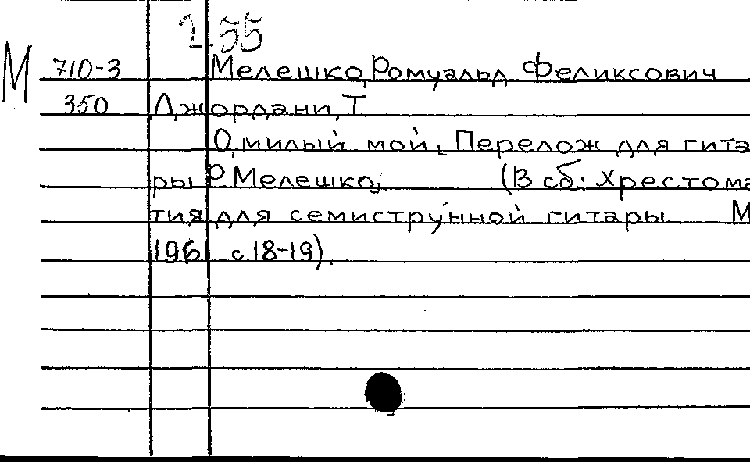 1.55
М 710-3 Мелешко, Ромуальд Феликсович
350 Джордани, Т.
О, милый мой. Перелож для гита
ры Р. Мелешко, (В сб: Хреcтома
тия для семиструнной гитары М
1961 с 18-19).